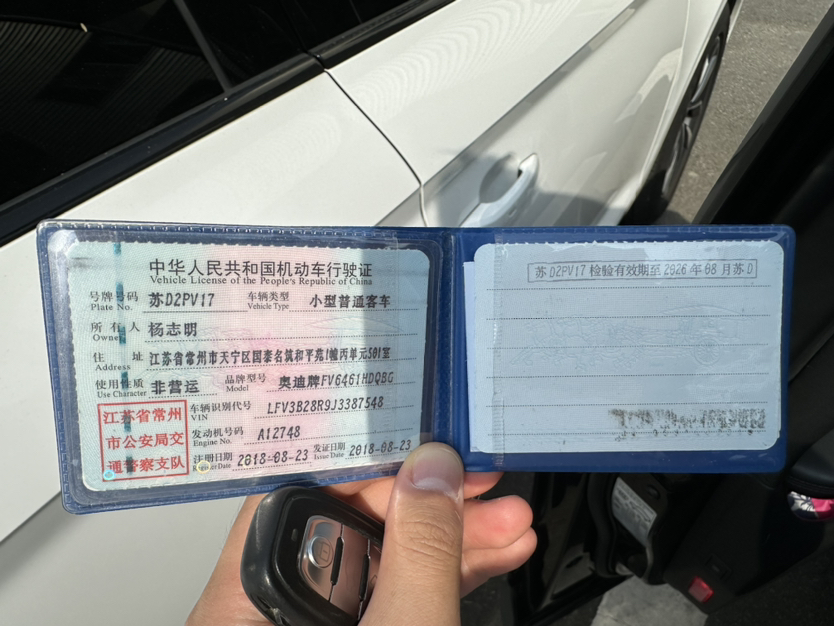 中华人民共和国机动车行驶证
Vehicle License of the People's Republic of China
号牌号码 苏D2PV17 车辆类型 小型普通客车
Plate No. Vehicle Type
所有人 杨志明
Owner
住址 江苏省常州市天宁区国泰名筑和平苑1幢丙单元501室
Address
使用性质 非营运 品牌型号 奥迪牌FV6461HDQBG
Use Character Model
江苏省常州
市公安局交
通警察支队
车辆识别代号 LFV3B28R9J3387548
VIN
发动机号码 A12748
Engine No.
注册日期 2018-08-23 发证日期 2018-08-23
Register Date Issue Date
苏D2PV17 检验有效期至 2026 年 08 月 苏D